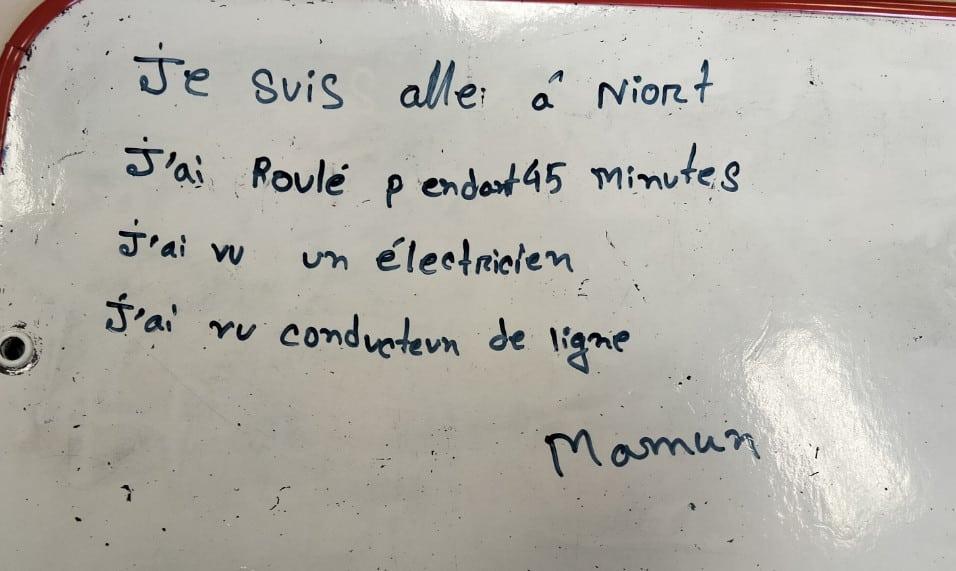 Je suis allei â Niort
J'ai Roulé pendant 45 minutes
J'ai vu un électricien
J'ai vu conducteur de ligne
Mamun